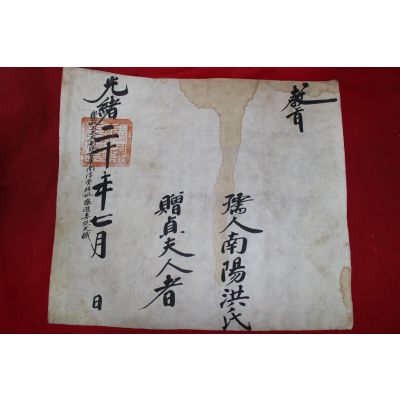 敎旨
孺人南陽洪氏
贈貞夫人者
光緖二十年七月 日